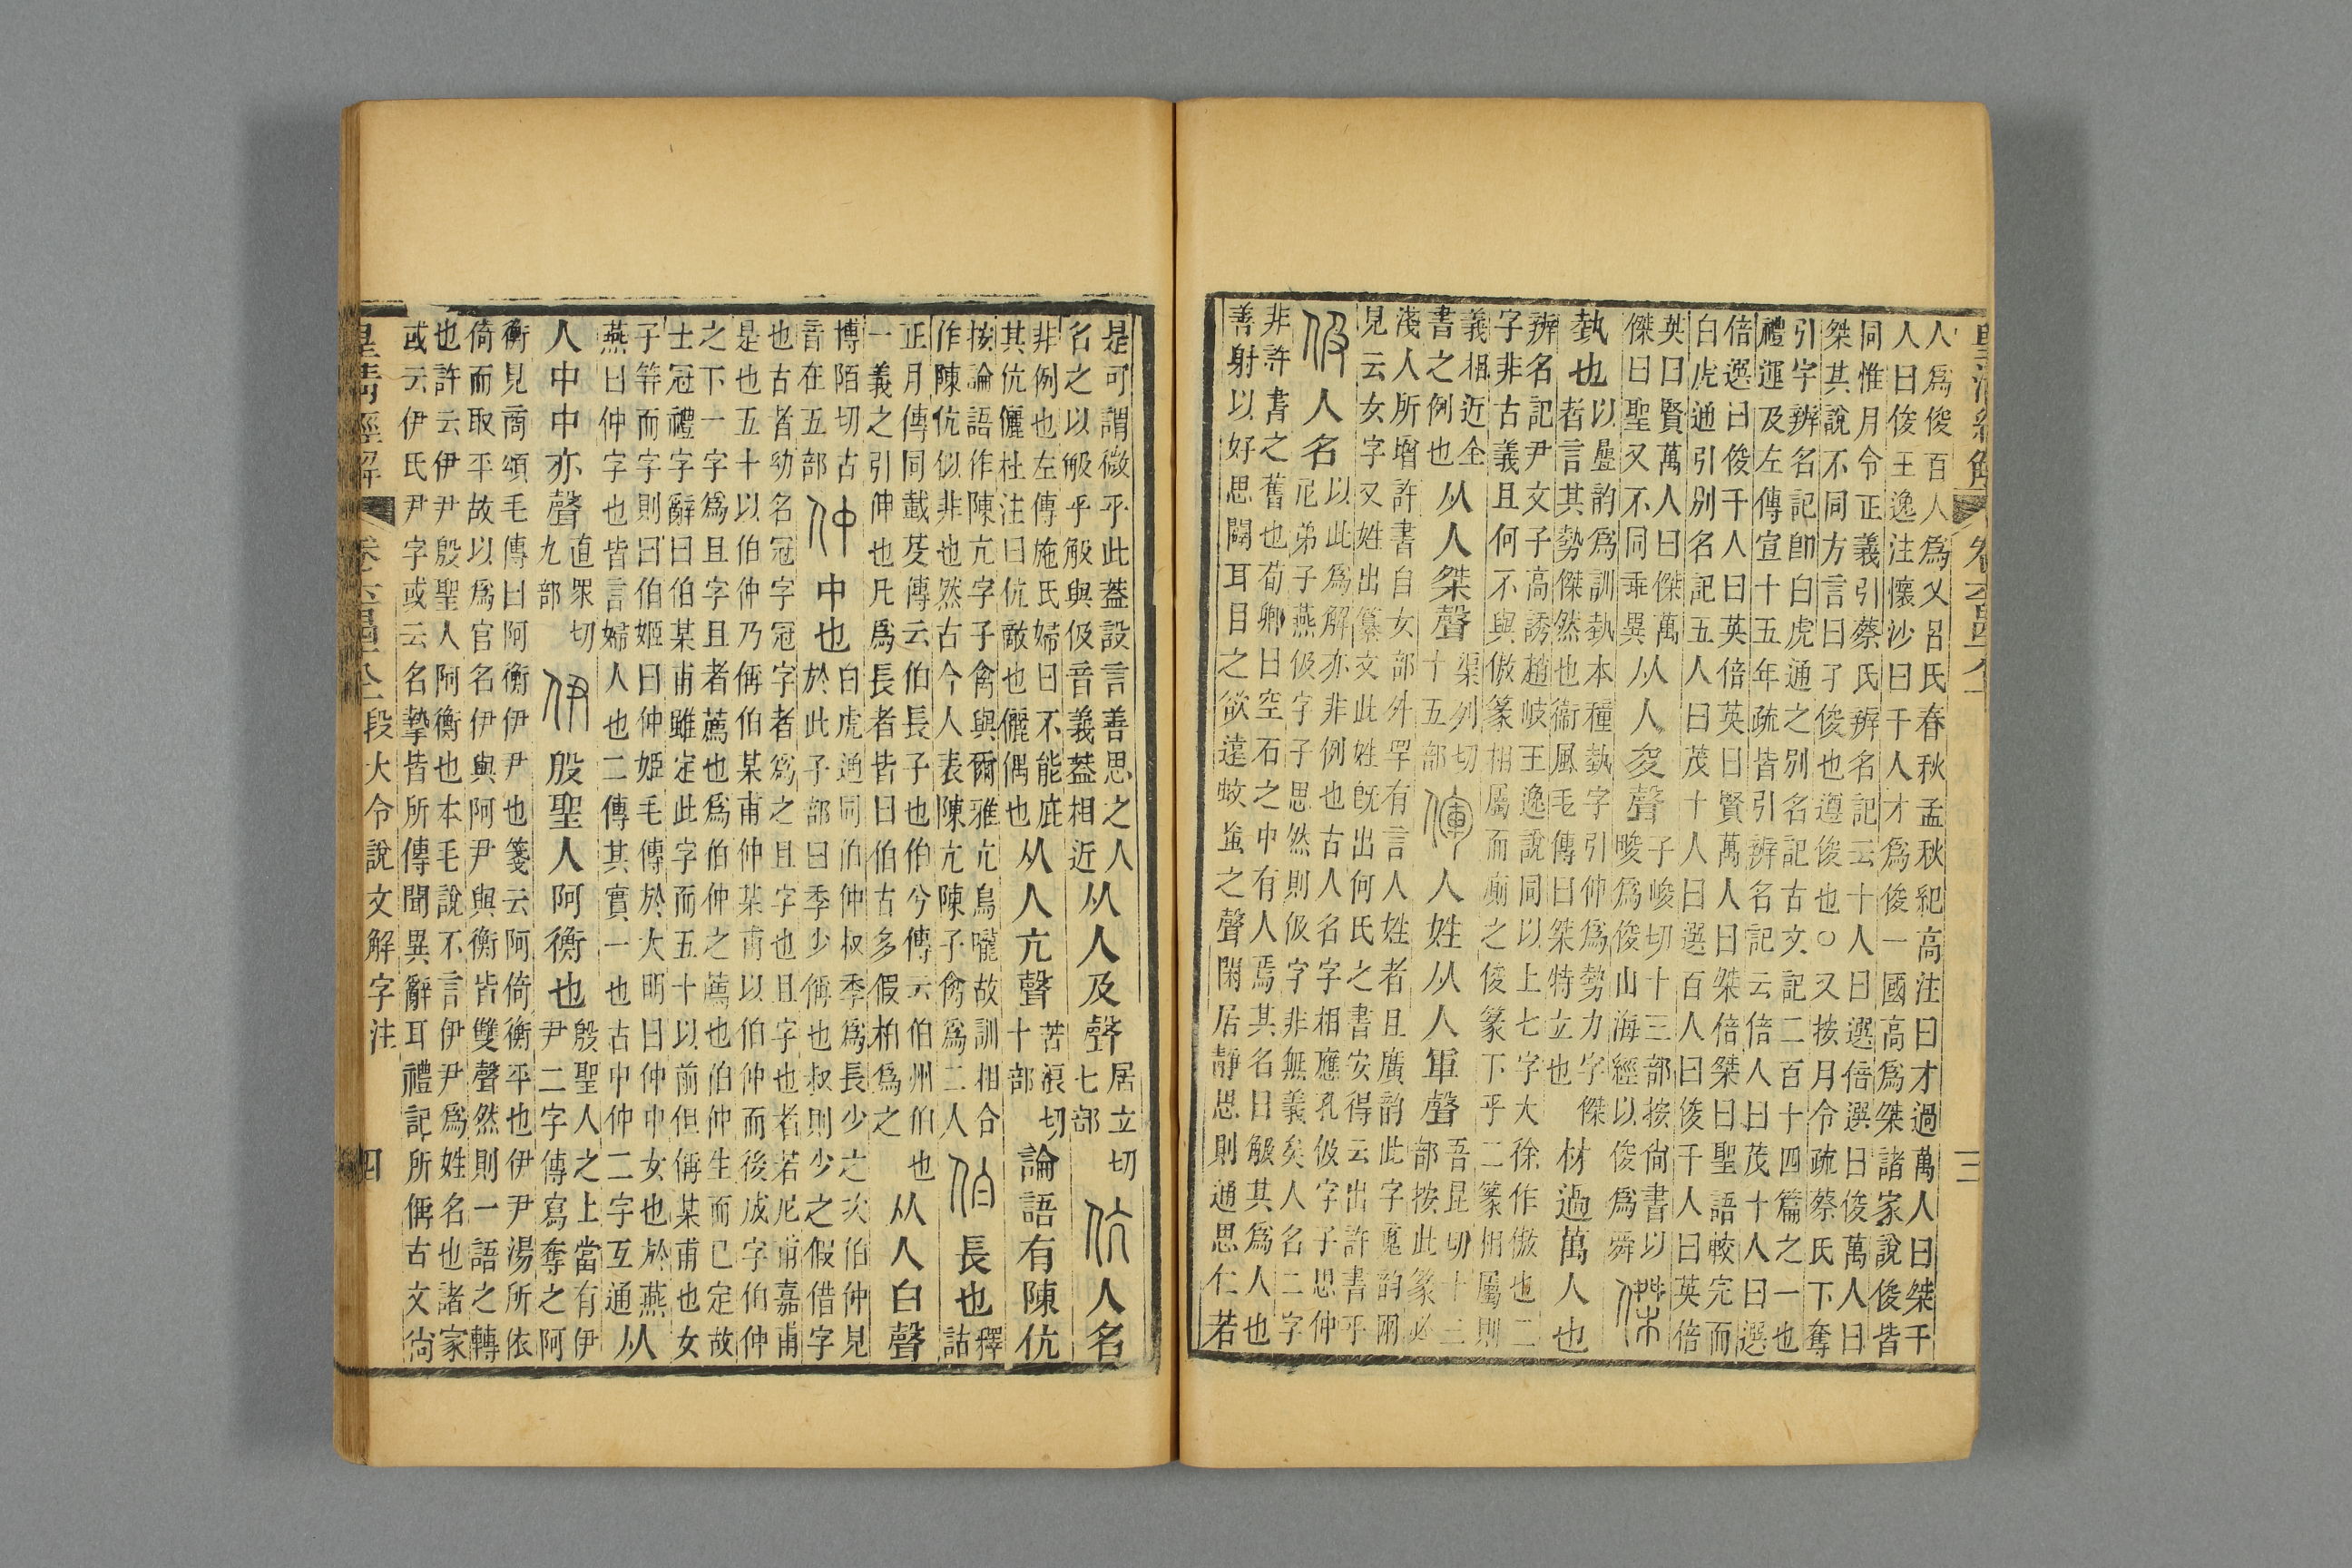 皇清經解
三
人爲俊百人爲乂呂氏春秋孟秋紀高注曰才過萬人曰桀千
人曰俊王逸注懷沙曰千人才爲俊一國高爲桀諸家說俊皆
同惟月令正義引蔡氏辨名記云十人曰選倍選曰俊萬人曰
桀其說不同方言曰孑俊也遵俊也○又按月令疏蔡氏下奪
引字辨名記卽白虎通之别名記古文記二百十四篇之一也
禮運及左傳宣十五年疏皆引辨名記云倍人曰茂十人曰選
倍選曰俊千人曰英倍英曰賢萬人曰桀倍桀曰聖語較完而
白虎通引别名記五人曰茂十人曰選百人曰俊千人曰英倍
英曰賢萬人曰傑萬
傑曰聖又不同乖異
从人夋聲
子峻切十三部按尙書以
畯爲俊山海經以俊爲舜
傑
埶也
以疊韵爲訓埶本種埶字引伸爲勢力字傑
者言其勢傑然也衞風毛傳曰桀特立也
材過萬人也
辨名記尹文子高誘趙岐王逸說同以上七字大徐作傲也二
字非古義且何不與傲篆相屬而廁之俊篆下乎二篆相屬則
義相近全
書之例也
从人桀聲
渠列切
十五部
人姓从人軍聲
吾昆切十三
部按此篆必
淺人所增許書自女部外罕有言人姓者且廣韵此字䰟韵兩
見云女字又姓出纂文此姓旣出何氏之書安得云出許書乎
伋
人名
以此爲解亦非例也古人名字相應孔伋字子思仲
尼弟子燕伋字子思然則伋字非無義矣人名二字
非許書之舊也荀卿曰空石之中有人焉其名曰觙其爲人也
善射以好思闢耳目之欲遠蚊䖟之聲閑居靜思則通思仁若
是可謂微乎此葢設言善思之人
名之以觙乎觙與伋音義葢相近
从人及聲
居立切
七部
伉
人名
非例也左傳施氏婦曰不能庇
其伉儷杜注曰伉敵也儷偶也
从人亢聲
苦浪切
十部
論語有陳伉
按論語作陳亢字子禽與爾雅亢鳥嚨故訓相合
作陳伉似非也然古今人表陳亢陳子禽爲二人
伯
長也
釋
詁
正月傳同載芟傳云伯長子也伯兮傳云伯州伯也
一義之引伸也凡爲長者皆曰伯古多假柏爲之
从人白聲
博陌切古
音在五部
仲
中也
白虎通同伯仲叔季爲長少之次伯仲見
於此子部曰季少偁也叔則少之假借字
也古者幼名冠字冠字者爲之且字也且字也者若尼甫嘉甫
是也五十以伯仲乃偁伯某甫仲某甫以伯仲而後成字伯仲
之下一字爲且字且者薦也爲伯仲之薦也伯仲生而已定故
士冠禮字辭曰伯某甫雖定此字而五十以前但偁某甫也女
子筓而字則曰伯姬曰仲姬毛傳於大明曰仲中女也於燕
燕曰仲字也皆言婦人也二傳其實一也古中仲二字互通
从
人中中亦聲
直眾切
九部
伊
殷聖人阿衡也
殷聖人之上當有伊
尹二字傳寫奪之阿
衡見商頌毛傳曰阿衡伊尹也箋云阿倚衡平也伊尹湯所依
倚而取平故以爲官名伊與阿尹與衡皆雙聲然則一語之轉
也許云伊尹殷聖人阿衡也本毛說不言伊尹爲姓名也諸家
或云伊氏尹字或云名摯皆所傳聞異辭耳禮記所偁古文尙
皇清經解
段大令說文解字注
四